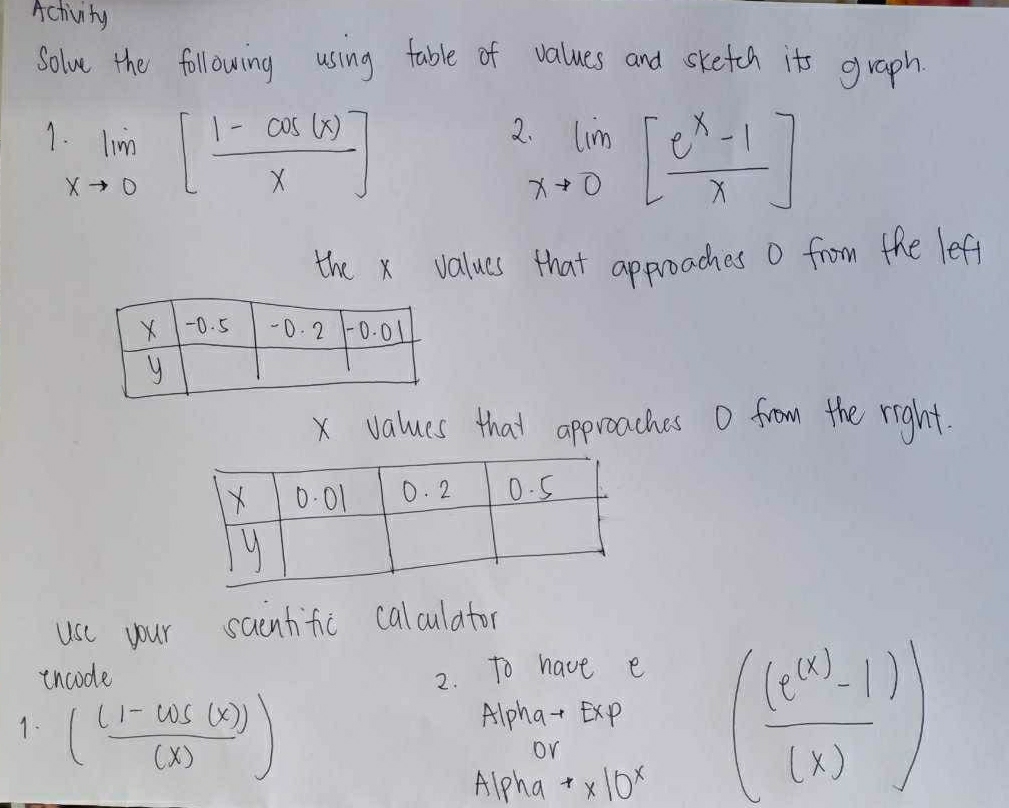 Activity
Solve the following using table of values and sketch its graph.
1. lim x → 0 [ (1 - cos (x)) / x ]
2. lim x → 0 [ (e^x - 1) / x ]
the x values that approaches 0 from the left
x -0.5 -0.2 -0.01
y
x values that approaches 0 from the right.
x 0.01 0.2 0.5
y
use your scientific calculator
encode
1. ( (1 - cos (x)) / (x) )
2. To have e
Alpha → Exp
or
Alpha → x10^x
( (e^(x) - 1) / (x) )